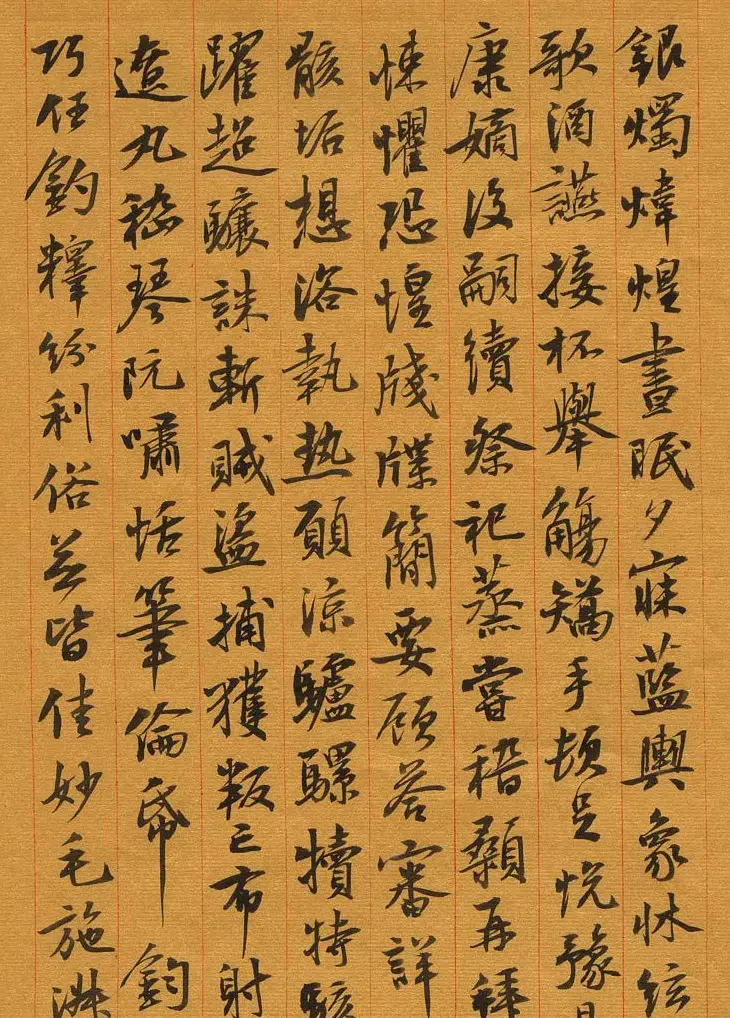 銀燭煒煌晝眠夕寐藍輿象牀絃
歌酒讌接杯舉觴矯手頓足悅豫且
康嫡後嗣續祭祀蒸嘗稽顙再拜
悚懼恐惶牋牒簡要顧答審詳
骸垢想浴執熱願涼驢騾犢特駭
躍超驤誅斬賊盜捕獲叛亡布射
遼丸嵇琴阮嘯恬筆倫帋鈞
巧任釣釋紛利俗並皆佳妙毛施淑